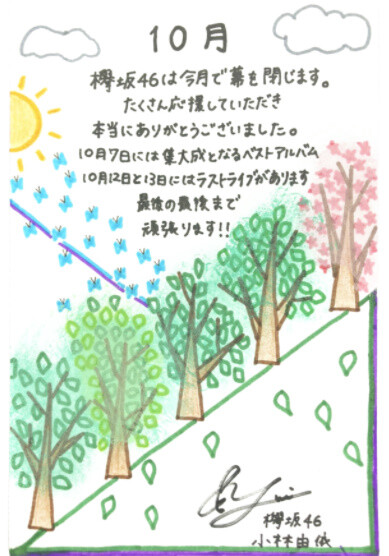 10月
欅坂46は今月で幕を閉じます。
たくさん応援していただき
本当にありがとうございました。
10月7日には集大成となるベストアルバム
10月12日と13日にはラストライブがあります
最後の最後まで
頑張ります!!
欅坂46
小林由依